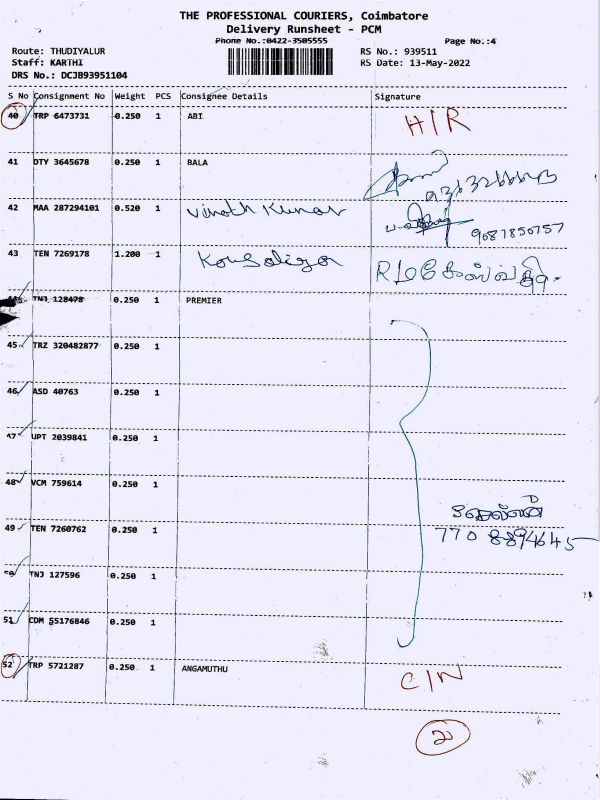 THE PROFESSIONAL COURIERS, Coimbatore
Delivery Runsheet - PCM
Phone No.:0422-3505555
Page No.:4
Route: THUDIYALUR
RS No.: 939511
Staff: KARTHI
RS Date: 13-May-2022
DRS No.: DCJB93951104
S No Consignment No Weight PCS Consignee Details Signature
40 TRP 6473731 0.250 1 ABI H/R
41 DTY 3645678 0.250 1 BALA
42 MAA 287294101 0.520 1 Vinoth Kumar
9087850757
43 TEN 7269178 1.200 1
TNJ 128478 0.250 1 PREMIER
45 TRZ 320482877 0.250 1
46 ASD 40763 0.250 1
47 UPT 2039841 0.250 1
48 VCM 759614 0.250 1
49 TEN 7260762 0.250 1
770 8894645
50 TNJ 127596 0.250 1
51 CDM 55176846 0.250 1
52 TRP 5721287 0.250 1 ANGAMUTHU C/N
2